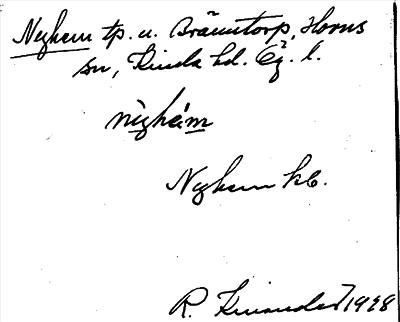 Nyhem tp. u. Bråuntorp, Horns
sn, Kinda hd. Ög. l.
nỳhém
Nyhem kb.
R. Kinander 1928